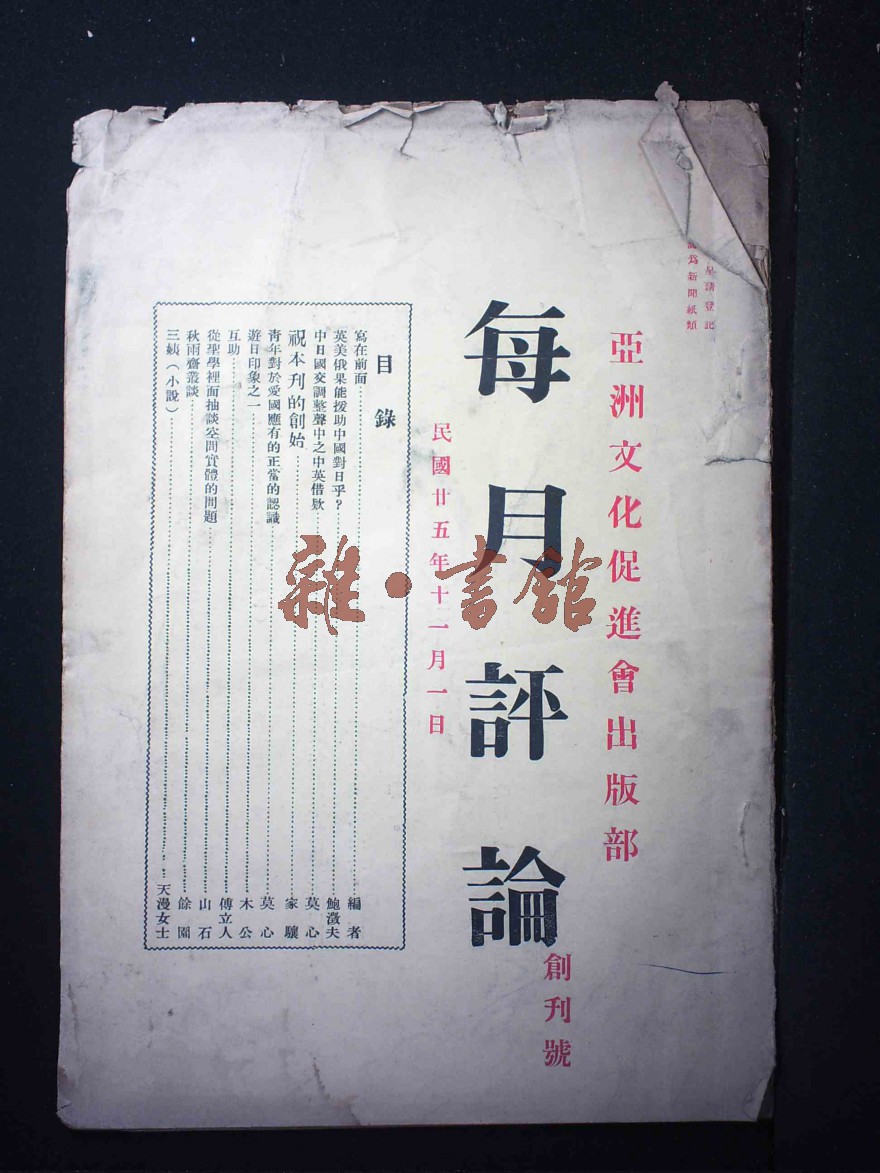 呈請登記
為新聞紙類
亞洲文化促進會出版部
每月評論
創刊號
民國廿五年十一月一日
目錄
寫在前面 編者
英美俄果能援助中國對日乎? 鮑澂夫
中日國交調整聲中之中英借欵 莫心
祝本刊的創始 家驥
青年對於愛國應有的正當的認識 莫心
遊日印象之一 木公
互助 傅立人
從聖學裡面抽談空間實體的問題 山石
秋雨齋叢談 餘園
三姨(小說) 天漫女士
雜·書館